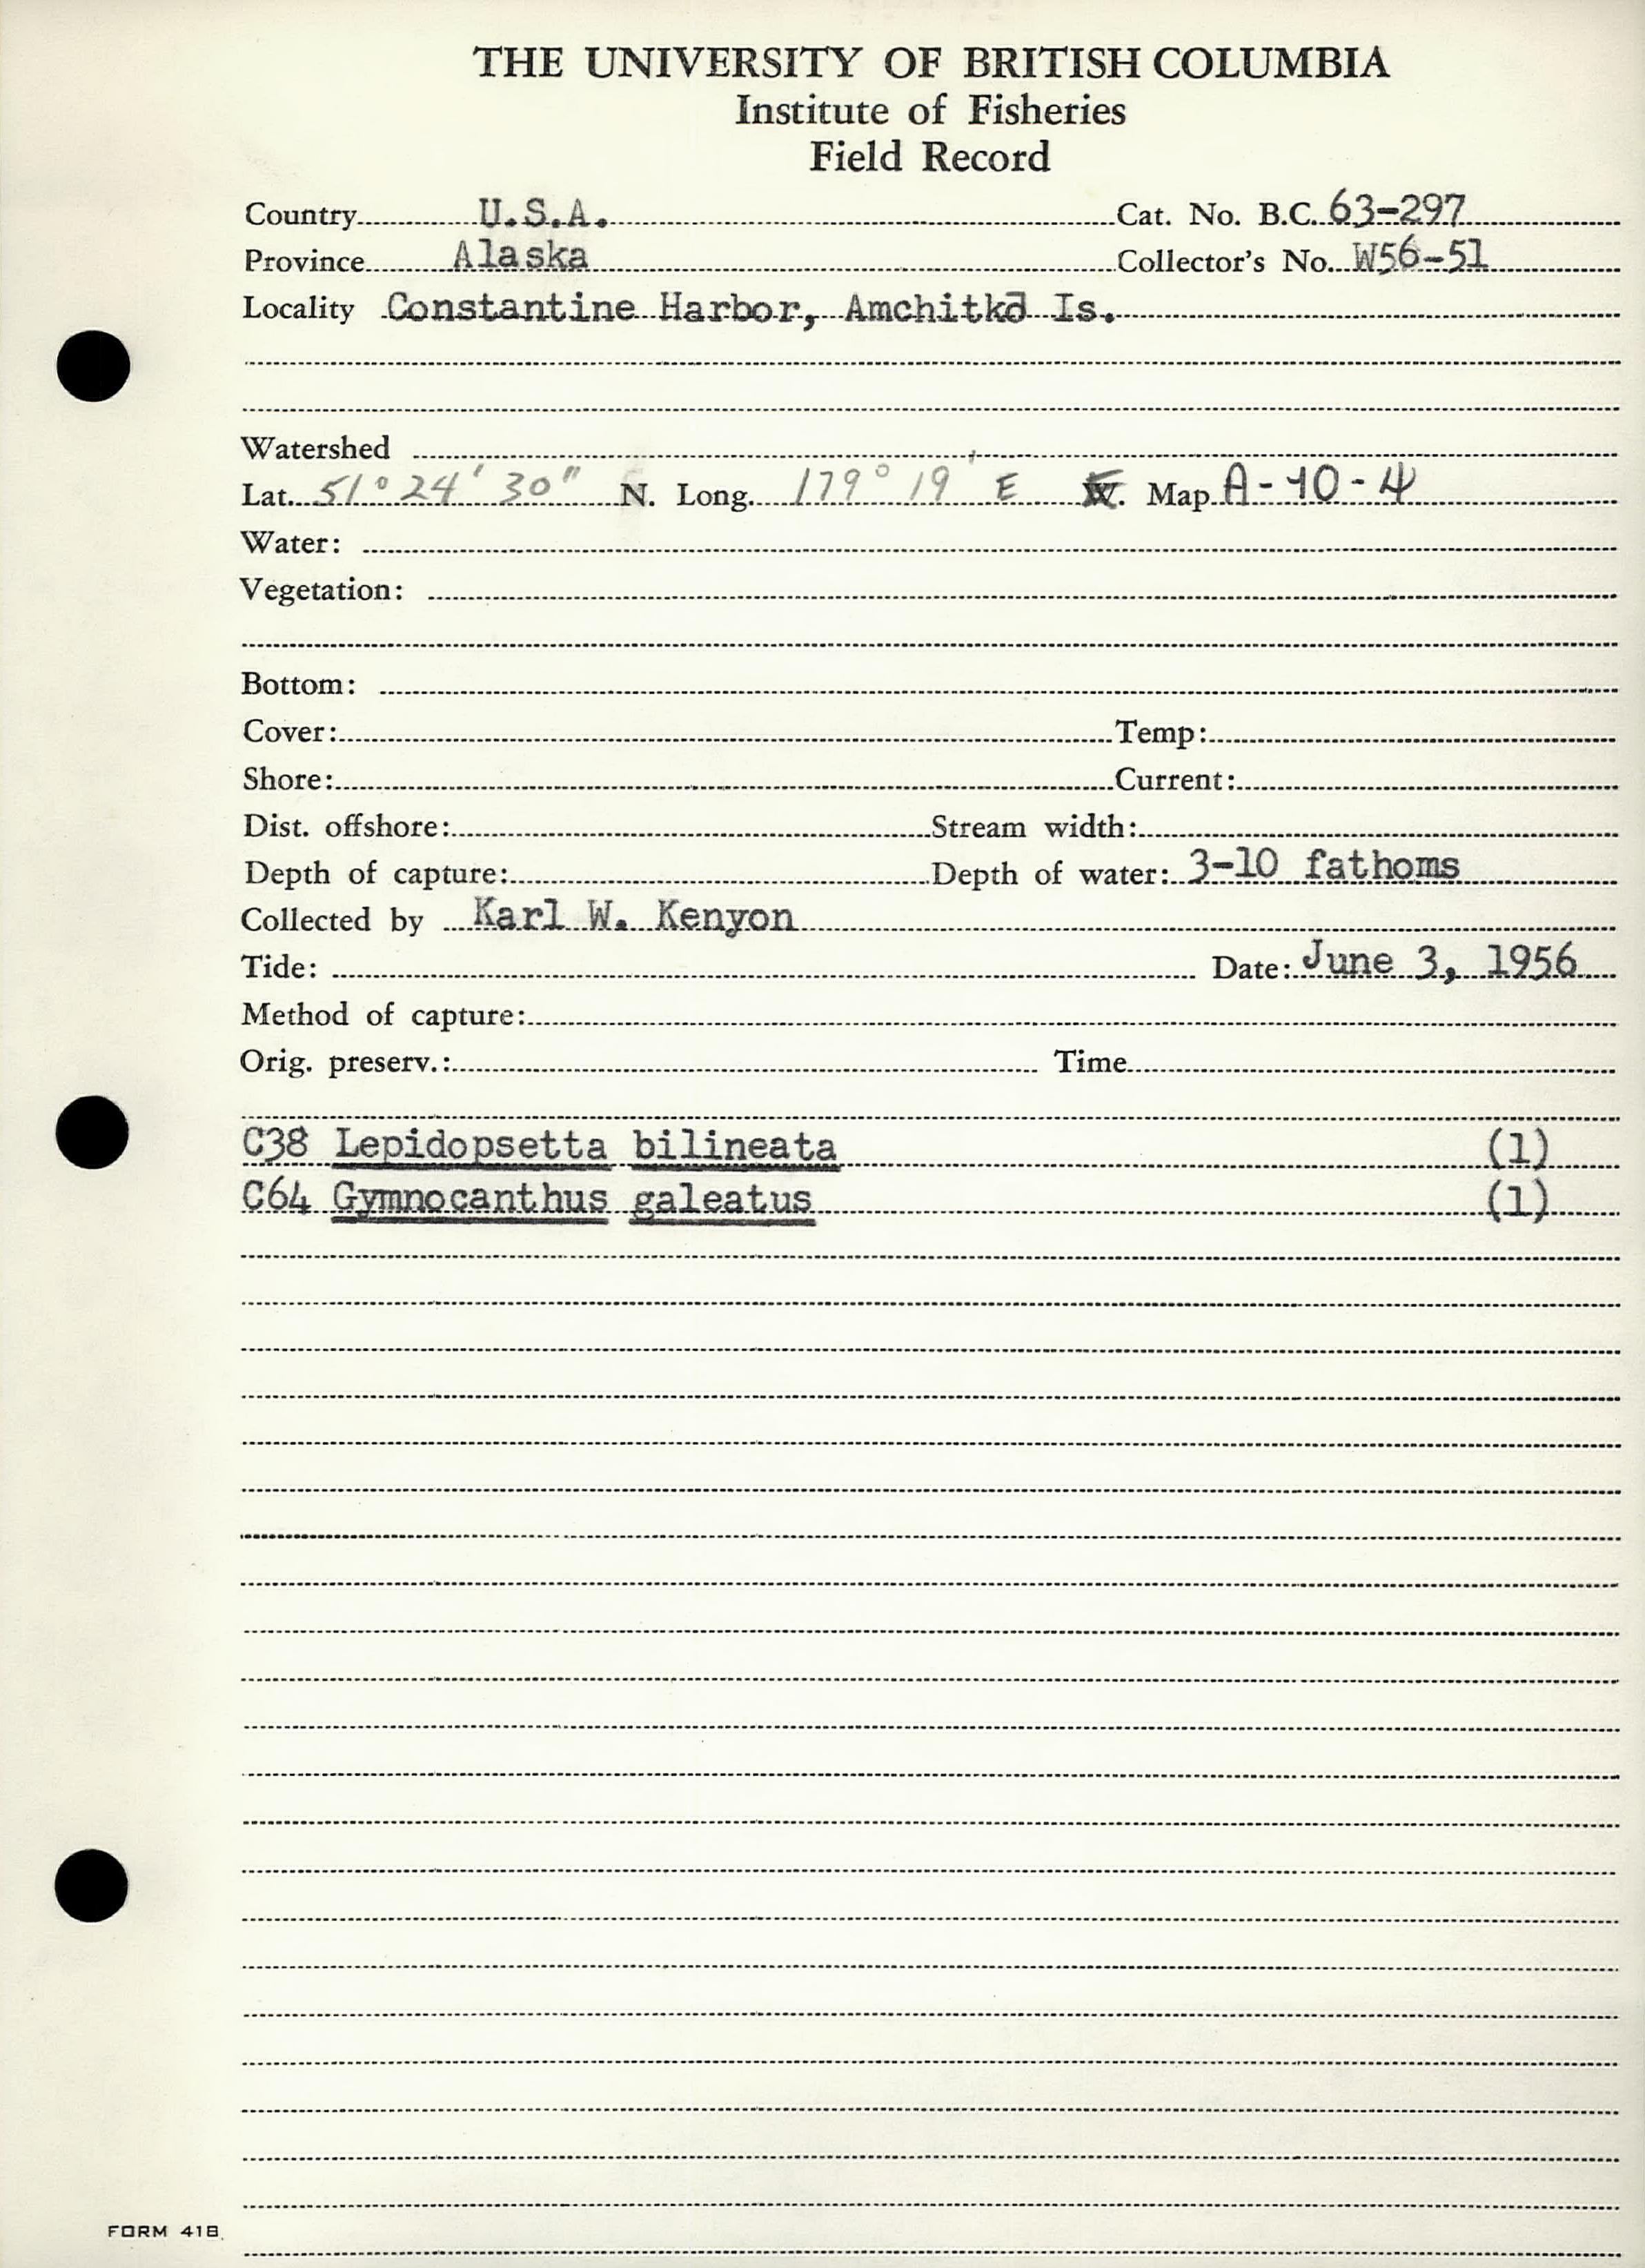 THE UNIVERSITY OF BRITISH COLUMBIA
Institute of Fisheries
Field Record
Country U.S.A. Cat. No. B.C. 63-297
Province Alaska Collector's No. W56-51
Locality Constantine Harbor, Amchitka Is.
Watershed
Lat. 51° 24' 30" N. Long. 179° 19' E Map A-10-4
Water:
Vegetation:
Bottom:
Cover: Temp:
Shore: Current:
Dist. offshore: Stream width:
Depth of capture: Depth of water: 3-10 fathoms
Collected by Karl W. Kenyon
Tide: Date: June 3, 1956
Method of capture:
Orig. preserv.: Time
C38 Lepidopsetta bilineata (1)
C64 Gymnocanthus galeatus (1)
FORM 41B